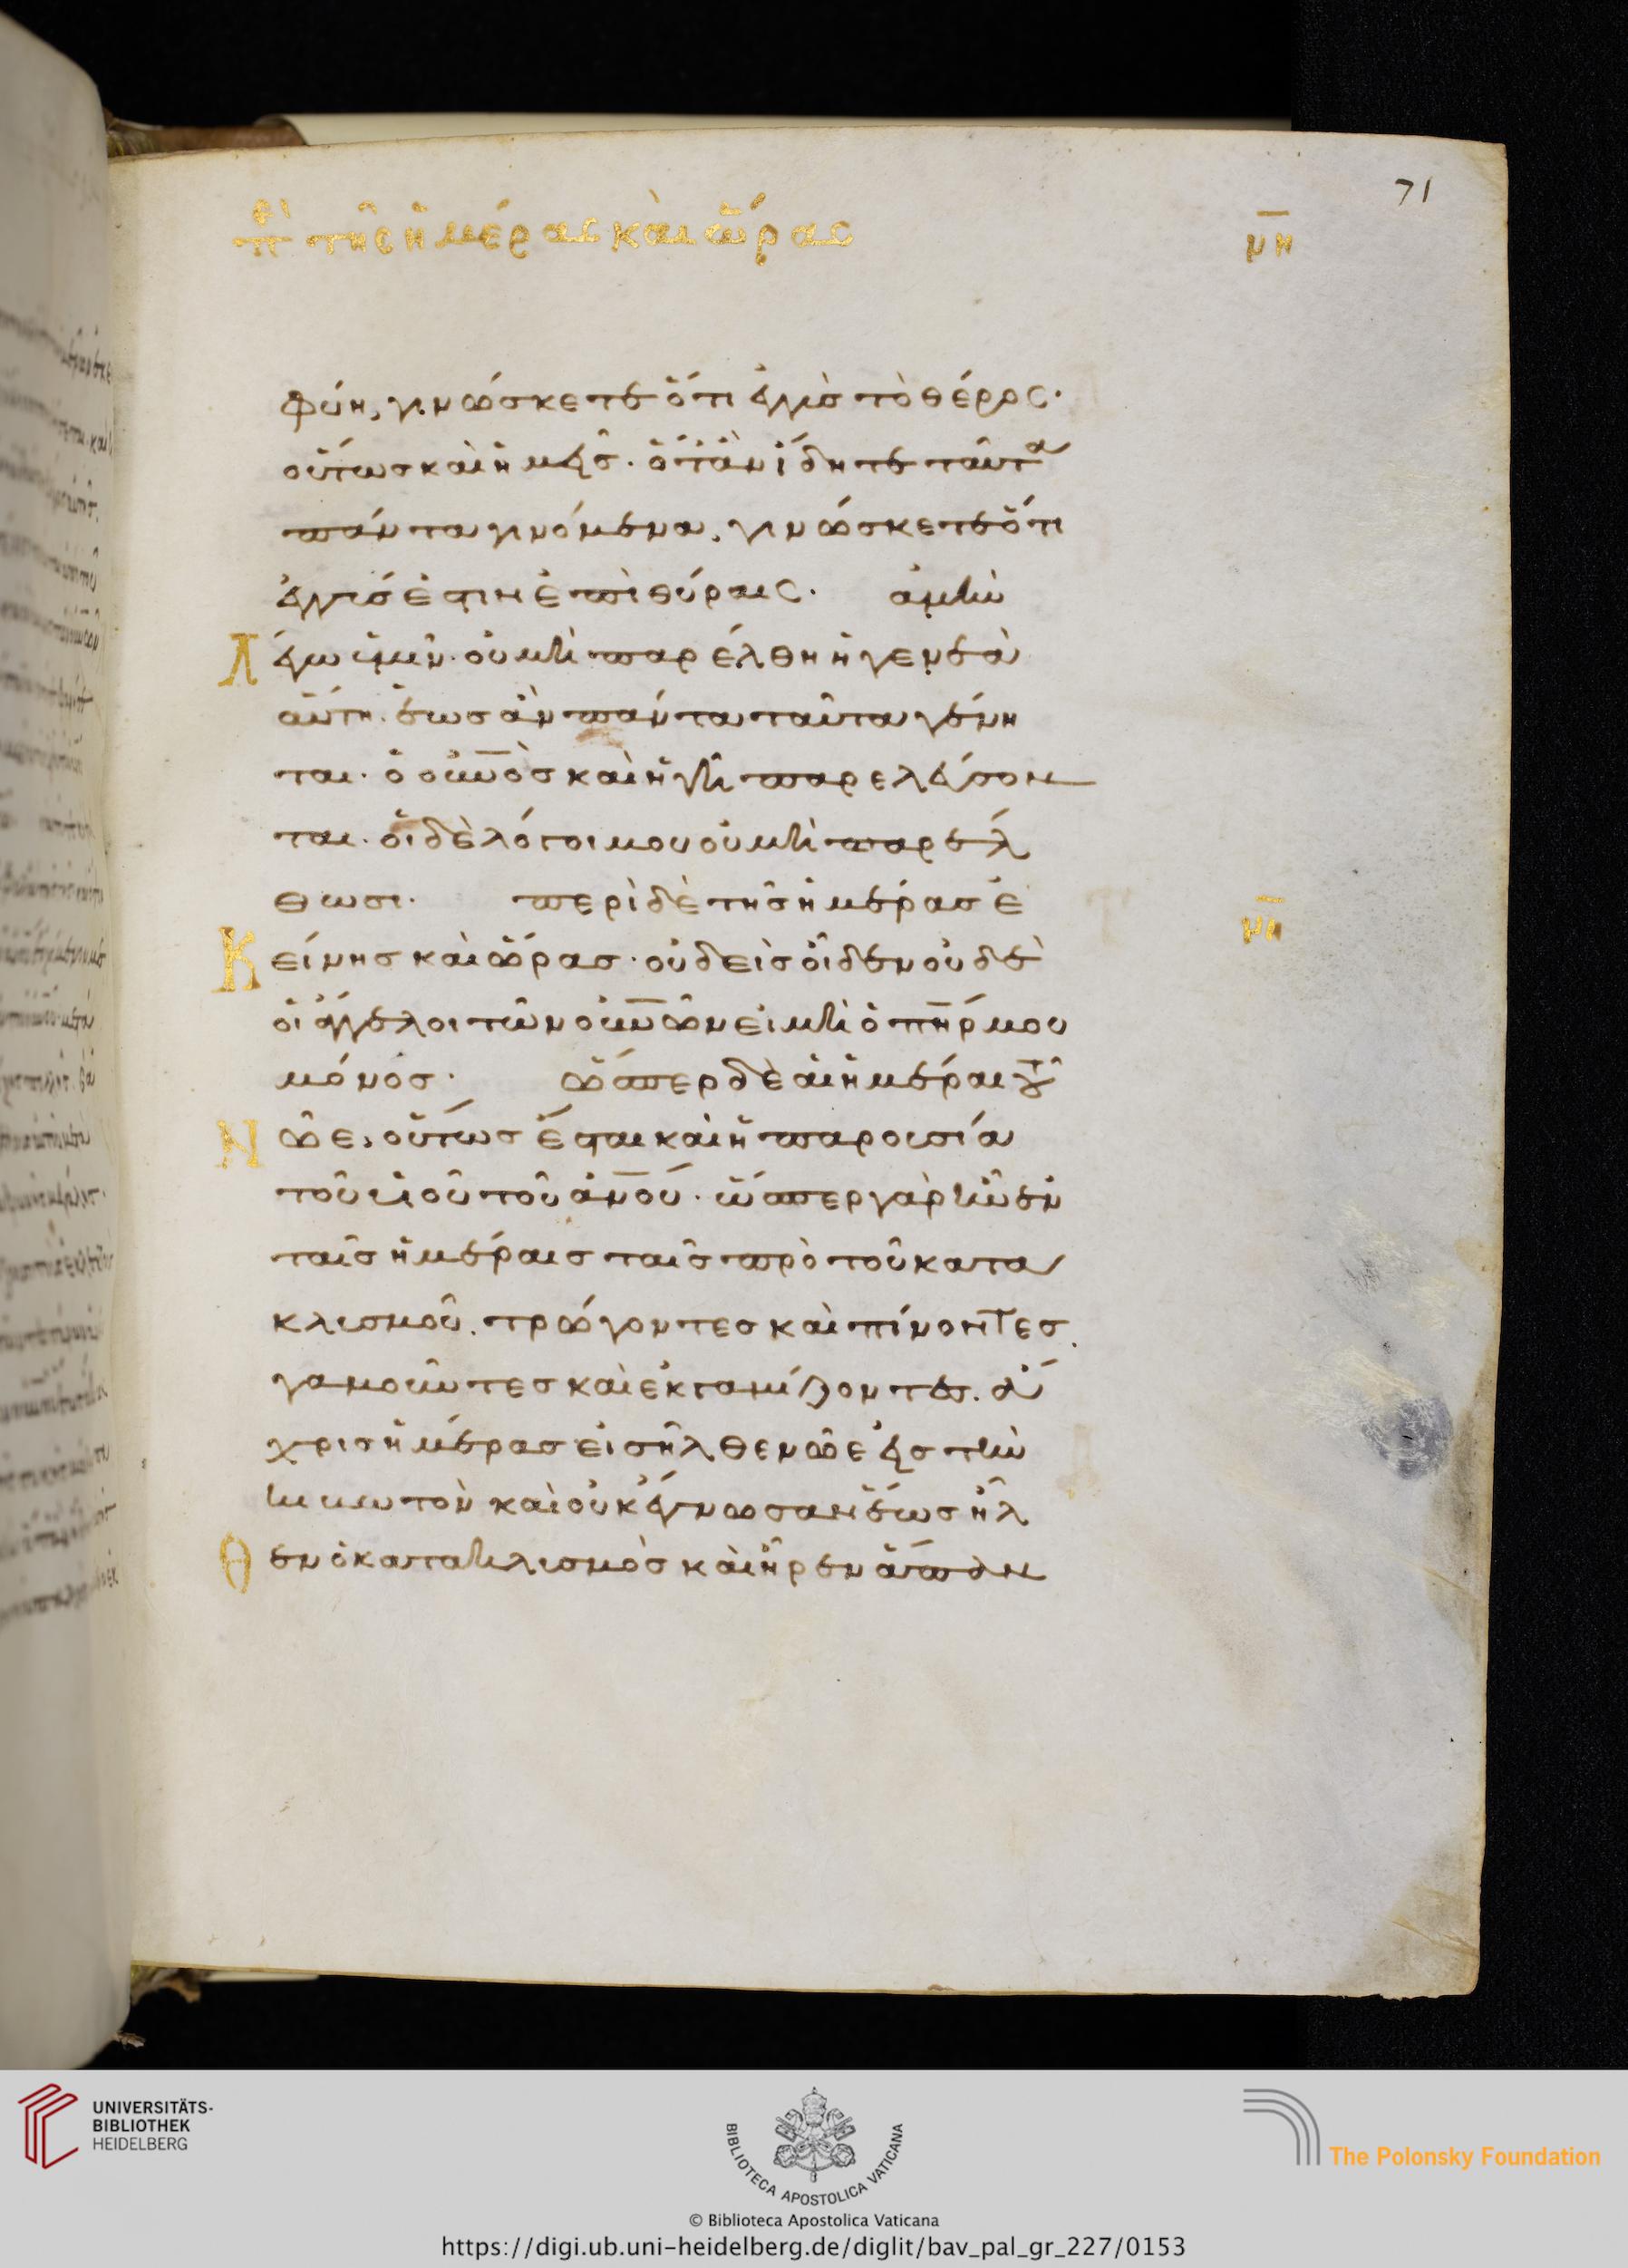 71
πὲρ τῆς ἡμέρας καὶ ὥρας
μη
φύη, γινώσκετε ὅτι ἐγγὺς τὸ θέρος·
οὕτως καὶ ἡμεῖς· ὅταν ἴδητε ταῦτα
πάντα γινόμενα, γινώσκετε ὅτι
ἐγγύς ἐστιν ἐπὶ θύραις. ἀμὴν
Λέγω ὑμῖν· οὐ μὴ παρέλθη ἡ γενεὰ
αὕτη. ἕως ἂν πάντα ταῦτα γένη
ται· ὁ οὐνὸσ καὶ ἡ γῆ παρελεύσον
ται· οἱ δὲ λόγοι μου οὐ μὴ παρέλ
θωσι· περὶ δὲ τῆς ἡμέρας ἐ
μη
Κείνης καὶ ὥρας· οὐδεὶς οἶδεν οὐδὲ
οἱ ἄγγελοι τῶν οὐνῶν εἰ μὴ ὁ πηρ μου
μόνος· ὥσπερ δὲ αἱ ἡμέραι τοῦ
Νῶε, οὕτως ἔσται καὶ ἡ παρουσία
τοῦ υἱοῦ τοῦ ἀνου· ὥσπερ γὰρ ἦν ἐν
ταῖς ἡμέραις ταῖς πρὸ τοῦ κατα
κλισμοῦ. τρώγοντες καὶ πίνοντες.
γαμοῦντες καὶ ἐκγαμίζοντες. ἄ
χρις ἡμέρας εἰσῆλθεν νῶε εἰς τὴν
κιβωτὸν καὶ οὐκ ἔγνωσαν ἕως ἦλ
Θεν ὁ κατακλισμὸς καὶ ἦρεν ἅπαν
UNIVERSITÄTS-
BIBLIOTHEK
HEIDELBERG
BIBLIOTECA APOSTOLICA VATICANA
The Polonsky Foundation
© Biblioteca Apostolica Vaticana
https://digi.ub.uni-heidelberg.de/diglit/bav_pal_gr_227/0153